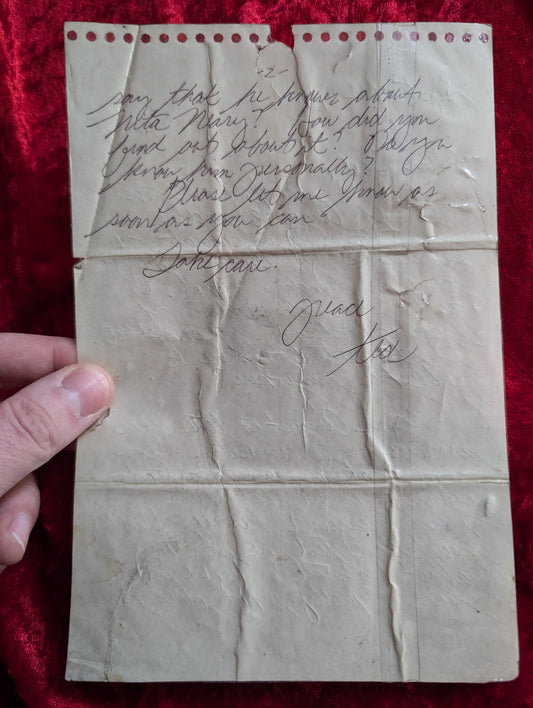 -2-
say that he knows about
Nita Neary? How did you
find out about it? Do you
know him personally?
Please let me know as
soon as you can
Take care.
peace
ted